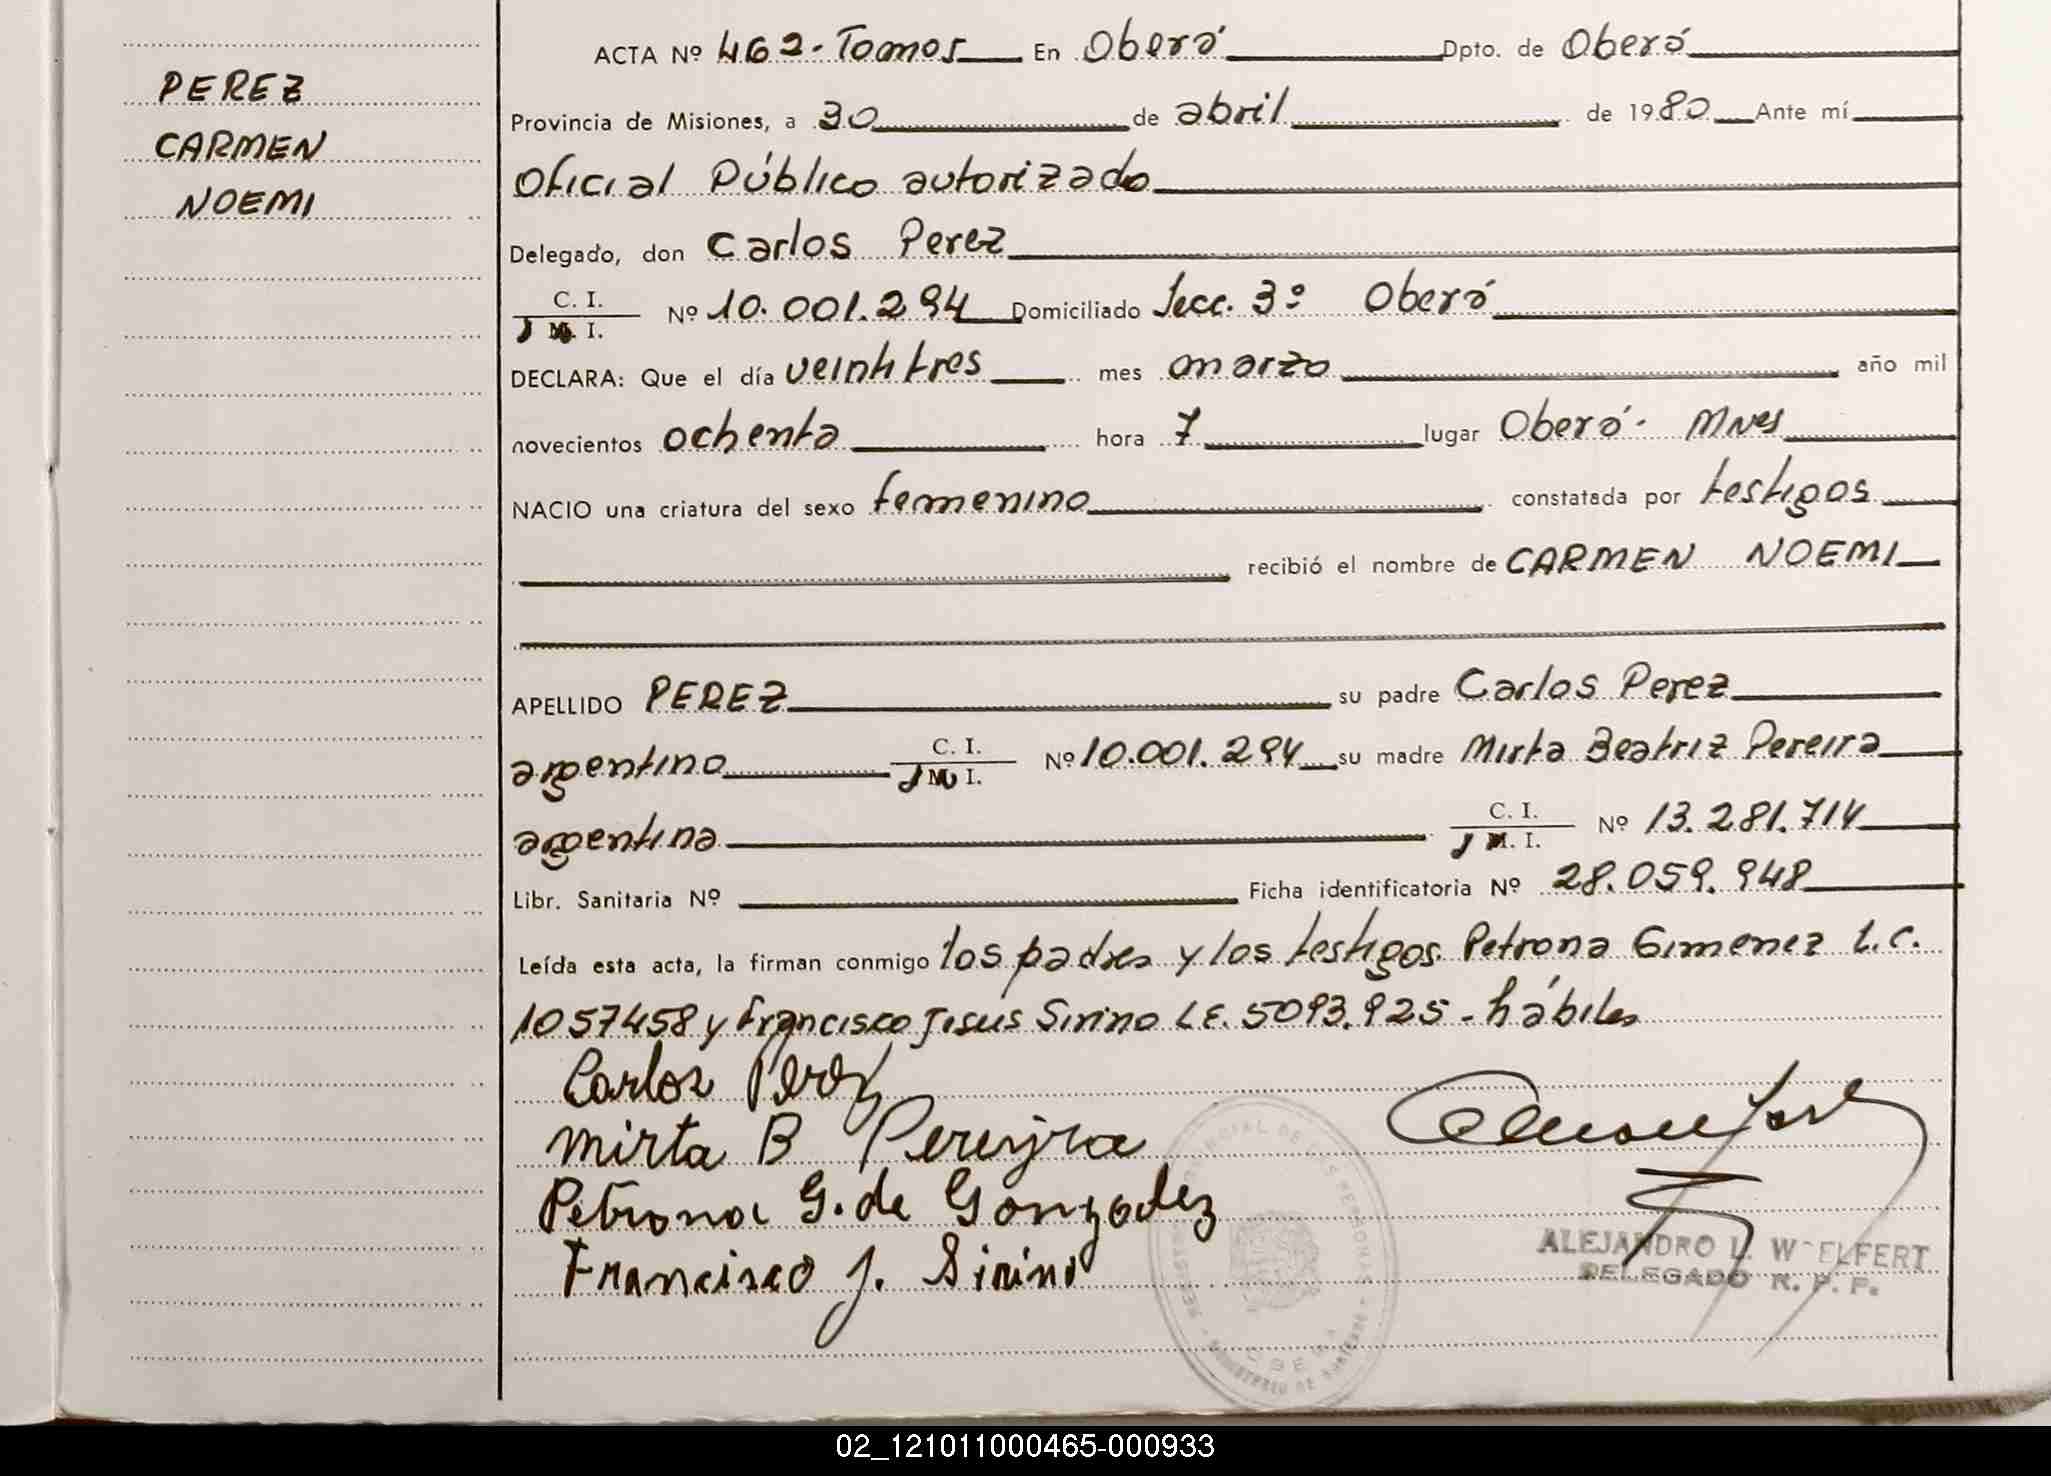 PEREZ
CARMEN
NOEMI
ACTA Nº 462-Tomo5 En Oberá Dpto. de Oberá
Provincia de Misiones, a 30 de abril de 1980 Ante mí
Oficial Público autorizado
Delegado, don Carlos Perez
C. I.
Nº 10.001.294 Domiciliado Secc. 3º Oberá
M. I.
DECLARA: Que el día veintitres mes marzo año mil
novecientos ochenta hora 7 lugar Oberá- Mnes
NACIO una criatura del sexo femenino constatada por testigos
recibió el nombre de CARMEN NOEMI
APELLIDO PEREZ su padre Carlos Perez
argentino C. I. Nº 10.001.294 su madre Mirta Beatriz Pereira
M. I.
argentina C. I. Nº 13.281.714
M. I.
Libr. Sanitaria Nº Ficha identificatoria Nº 28.059.948
Leída esta acta, la firman conmigo los padres y los testigos Petrona Gimenez L.C.
1057458 y Francisco Jesus Sirino LE. 5093.925 - hábiles
Carlos Perez
Mirta B Pereyra
Petrona G. de Gonzalez
Francisco J. Sirino
ALEJANDRO L. WOELFERT
DELEGADO R. P. P.
02_121011000465-000933